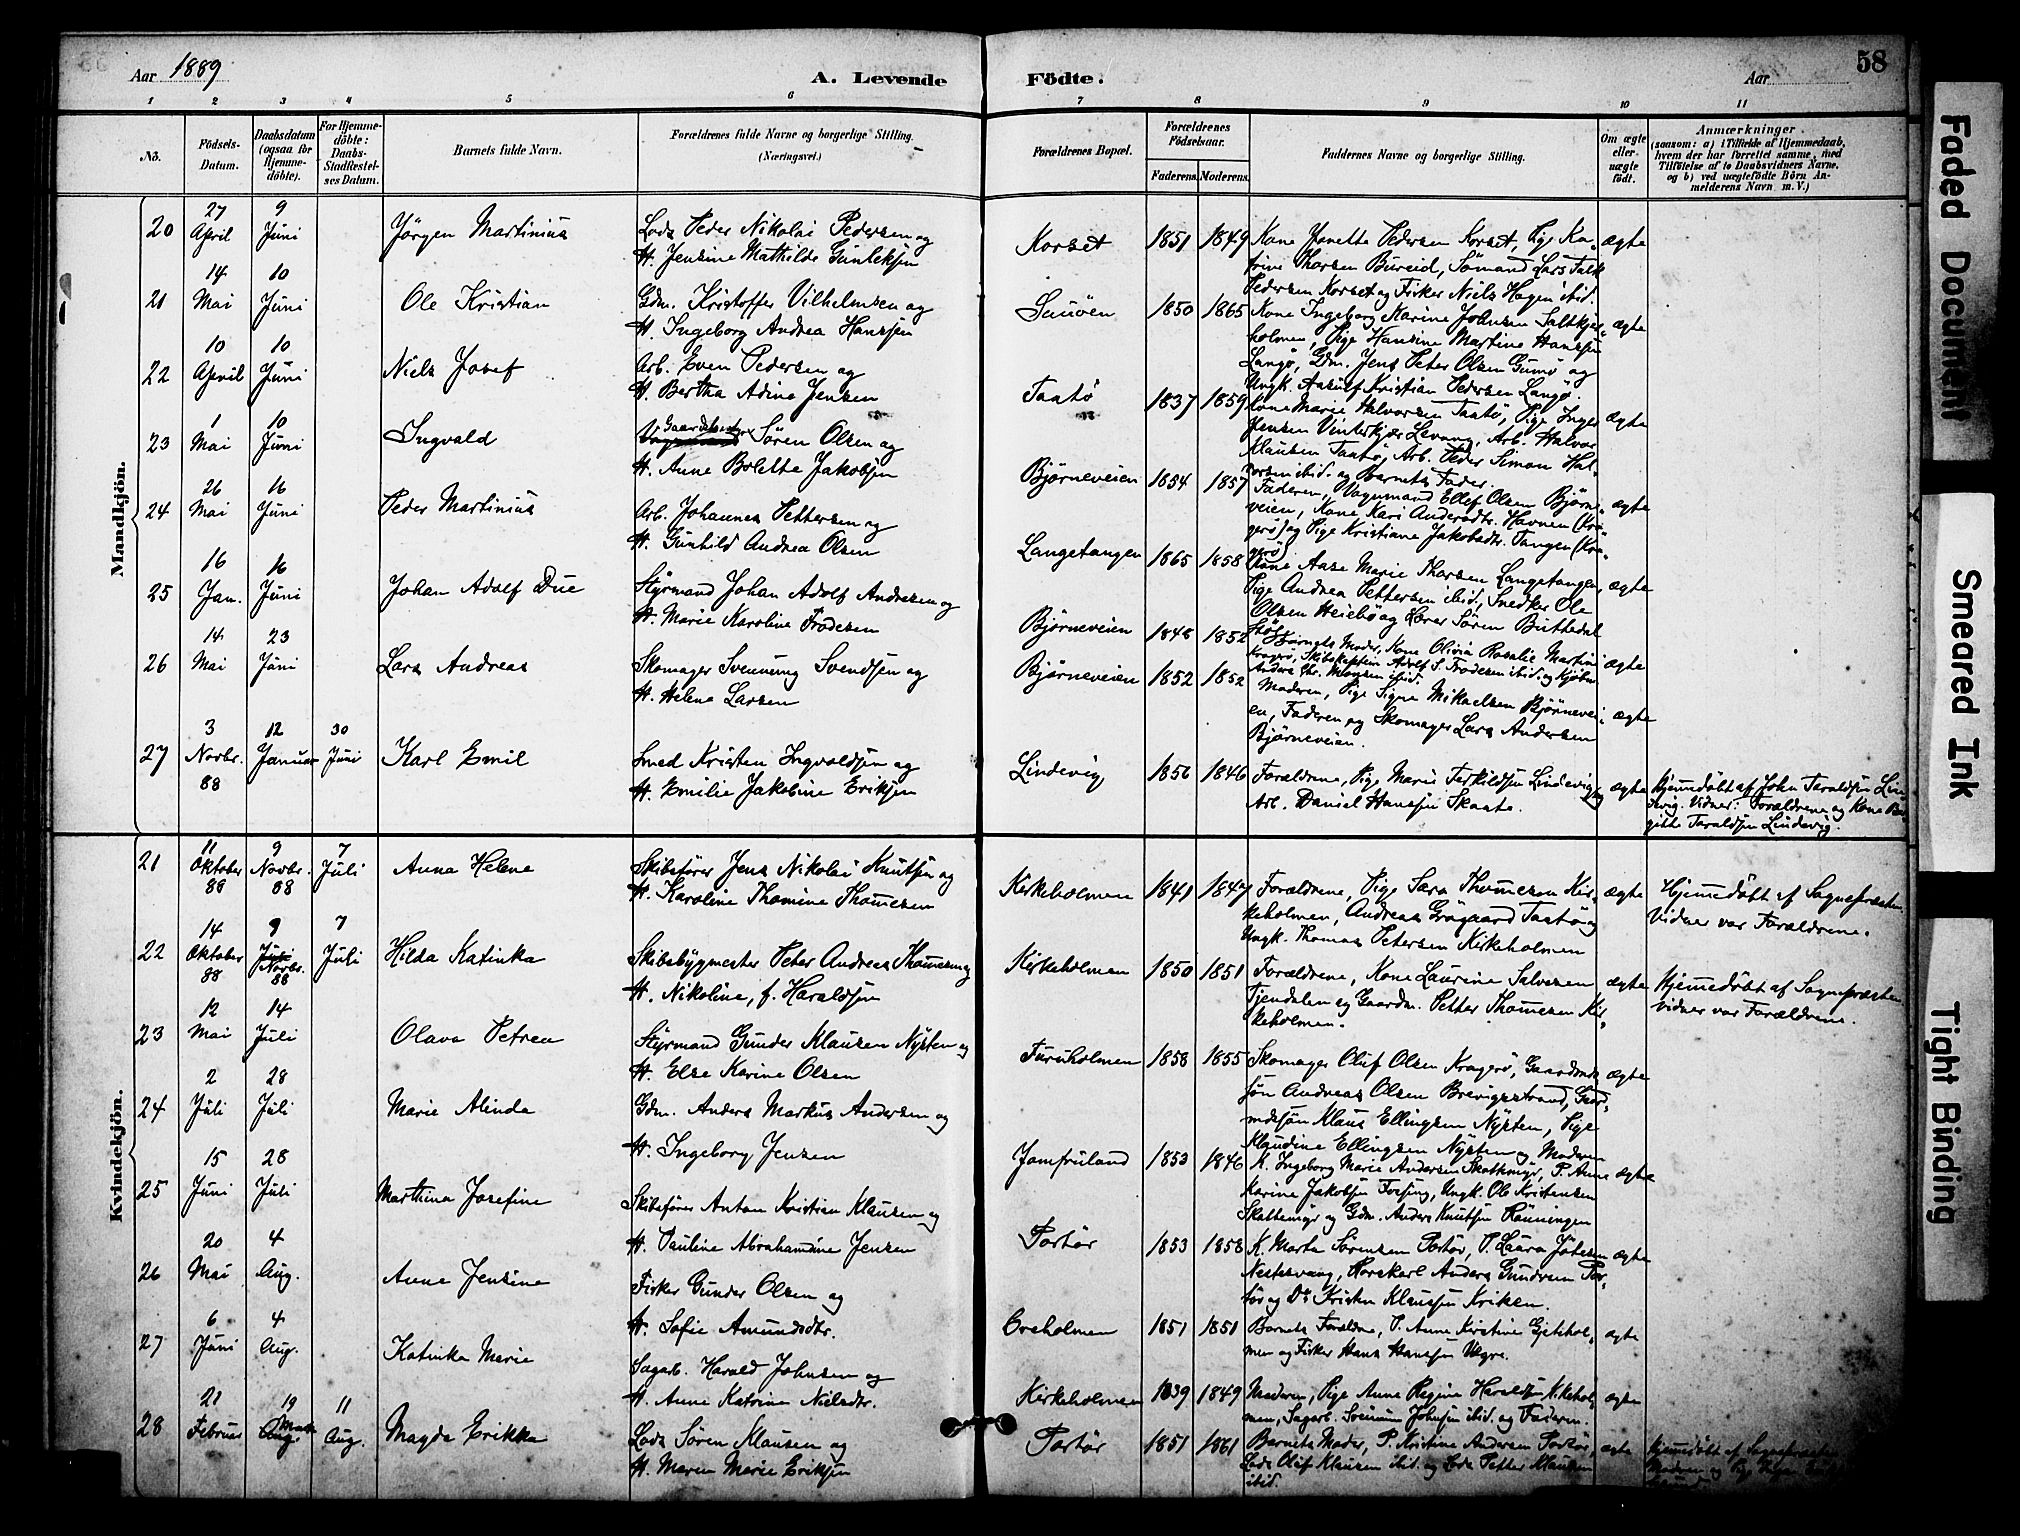 Aar 1889
A. Levende Fødte.
Aar
58
1 2 3 4 5 6 7 8 9 10 11
No.
Fødsels-Datum.
Daabsdatum (ogsaa for Hjemmedöbte).
For Hjemmedöbte: Daabs-Stadfæstelses Datum.
Barnets fulde Navn.
Forældrenes fulde Navne og borgerlige Stilling. (Næringsvei.)
Forældrenes Bopæl.
Forældrenes Födselsaar.
Faderens. Moderens.
Faddernes Navne og borgerlige Stilling.
Om ægte eller uægte födt.
Anmærkninger.
(saasom: a) i Tilfælde af Hjemmedaab, hvem der har forrettet samme, med Tilföielse af to Daabsvidners Navne, og b) ved uægtefödte Börn Anmelderens Navn m. V.)
Mandkjön.
20 27 April 9 Juni Jørgen Martinius Lods Peder Nikolai Pedersen og H. Jensine Mathilde Gunleksen Korset 1851 1849 Kone Janette Pedersen Korset, Pige Katrine Thorsen Bureid, Sømand Lars Falk Pedersen Korset og Fisker Niels Hagen ibid. ægte
21 14 Mai 10 Juni Ole Kristian Gdm. Kristoffer Vilhelmsen og H. Ingeborg Andrea Hanssen 1850 1865 Kone Ingeborg Karine Johnsen Saltkjærholmen, Pige Hansine Martine Hanssen Langø, Gdm. Jens Peter Olsen Gumø og Ungk. Aasulf Kristian Pedersen Langø. ægte
22 10 April 10 Juni Niels Josef Arb. Even Pedersen og H. Bertha Adine Jensen Taatø 1837 1859 Kone Marie Halvorsen Taatø, Pige Inger Jensen Vinterkjær Levang, Arb. Halvor Klausen Taatø, Arb. Peder Simon Halvorsen ibid. og Barnets Fader. ægte
23 1 Mai 10 Juni Ingvald Søren Olsen og H. Anne Bolette Jakobsen Bjørneveien 1854 1857 Faderen, Vognmand Ellef Olsen Bjørneveien, Kone Kari Andersdtr. Havnen (Kragerø) og Pige Kristiane Jakobsdtr. Tangen (Kragerø). ægte
24 26 Mai 16 Juni Peder Martinius Arb. Johannes Pettersen og H. Gunhild Andrea Olsen Langetangen 1865 1858 Kone Aase Marie Thorsen Langetangen, Pige Andrea Pettersen ibid, Snedker Ole Olsen Heiebø og Lærer Søren Buttedal ægte
25 16 Jan. 16 Juni Johan Adolf Due Styrmand Johan Adolf Andresen og H. Marie Karoline Frodesen Bjørneveien 1848 1852 Barnets Moder, Kone Olivia Rosalie Martini Kragerø, Skibskaptein Adolf S. Frodesen ibid. og Kjøbm. Anders Chr. ibid. ægte
26 14 Mai 23 Juni Lars Andreas Skomager Svennung Svendsen og H. Helene Larsen Bjørneveien 1852 1852 Moderen, Pige Signe Mikaelsen Bjørneveien, Faderen og Skomager Lars Andersen Bjørneveien. ægte
27 3 Novbr. 88 12 Januar 30 Juni Karl Emil Smed Kristen Ingvaldsen og H. Emilie Jakobine Eriksen Lindevig 1856 1846 Forældrene, Pige Marie Terkildsen Lindevig og Arb. Daniel Hanssen Skaate. ægte Hjemmedøbt af John Taraldsen Lindevig. Vidner: Forældrene og Kone Birgitte Taraldsen Lindevig.
Kvindekjön.
21 11 Oktober 88 9 Novbr. 88 7 Juli Anna Helene Skibsfører Jens Nikolai Knutsen og H. Karoline Thomine Thomesen Kirkeholmen 1841 1847 Forældrene, Pige Sara Thomesen Kirkeholmen, Andreas Grøgaard Taatø og Ungk. Thomas Petersen Kirkeholmen ægte Hjemmedøbt af Sognepræsten. Vidner var Forældrene.
22 14 Oktober 88 9 Novbr. 88 7 Juli Hilda Katinka Skibsbygmester Peter Andreas Thomesen og H. Nikoline, f. Haraldsen Kirkeholmen 1850 1851 Forældrene, Kone Laurine Salvesen Tjendalen og Gaardm. Petter Thomesen Kirkeholmen. ægte Hjemmedøbt af Sognepræsten. Vidner var Forældrene.
23 12 Mai 14 Juli Olava Petrea Styrmand Gunder Klausen Nysten og H. Else Karine Olsen Furuholmen 1858 1855 Skomager Oluf Olsen Kragerø, Gaardmandssøn Andreas Olsen Brevigstrand, Gaardmdssøn Klaus Ellingsen Nysten, Pige Klaudine Ellingsen Nysten og Moderen ægte
24 2 Juli 28 Juli Marie Alinda Gdm. Anders Markus Andersen og H. Ingeborg Jensen Jomfruland 1853 1846 K. Ingeborg Marie Andersen Skatmyr, P. Anne Karine Jakobsen Fossing, Ungk. Ole Kristensen Skattemyr og Gdm. Anders Knutsen Rønningen ægte
25 15 Juni 28 Juli Marthina Josefine Skibsfører Anton Kristian Klausen og H. Pauline Abrahamine Jensen Portør 1853 1858 K. Marta Sørensen Portør, P. Laura Nestesvaag, Anders Portør og Do Kristen Klausen Kriken. ægte
26 20 Mai 4 Aug. Anne Jensine Fisker Gunder Olsen og H. Sofie Amundsdtr. Oreholmen 1851 1851 Barnets Forældre, P. Anne Kirstine Gjetholmen og Fisker Hans Hanssen ægte
27 6 Juni 4 Aug. Katinka Marie Sagarb. Harald Johnsen og H. Anne Katrine Nielsdtr. Kirkeholmen 1839 1849 Moderen, Pige Anne Regine Haraldsen Kirkeholmen, Sagarb. Svennum Johnsen ibid. og Faderen. ægte
28 21 Februar 19 Marts 11 Aug. Magda Erikka Lods Søren Klausen og H. Maren Marie Eriksen Portør 1851 1861 Barnets Moder, P. Kristine Andersen Portør, Lods Oluf Klausen ibid. og Lods Petter Klausen ibid. ægte Hjemmedøbt af Sognepræsten
Faded Document
Smeared Ink
Tight Binding